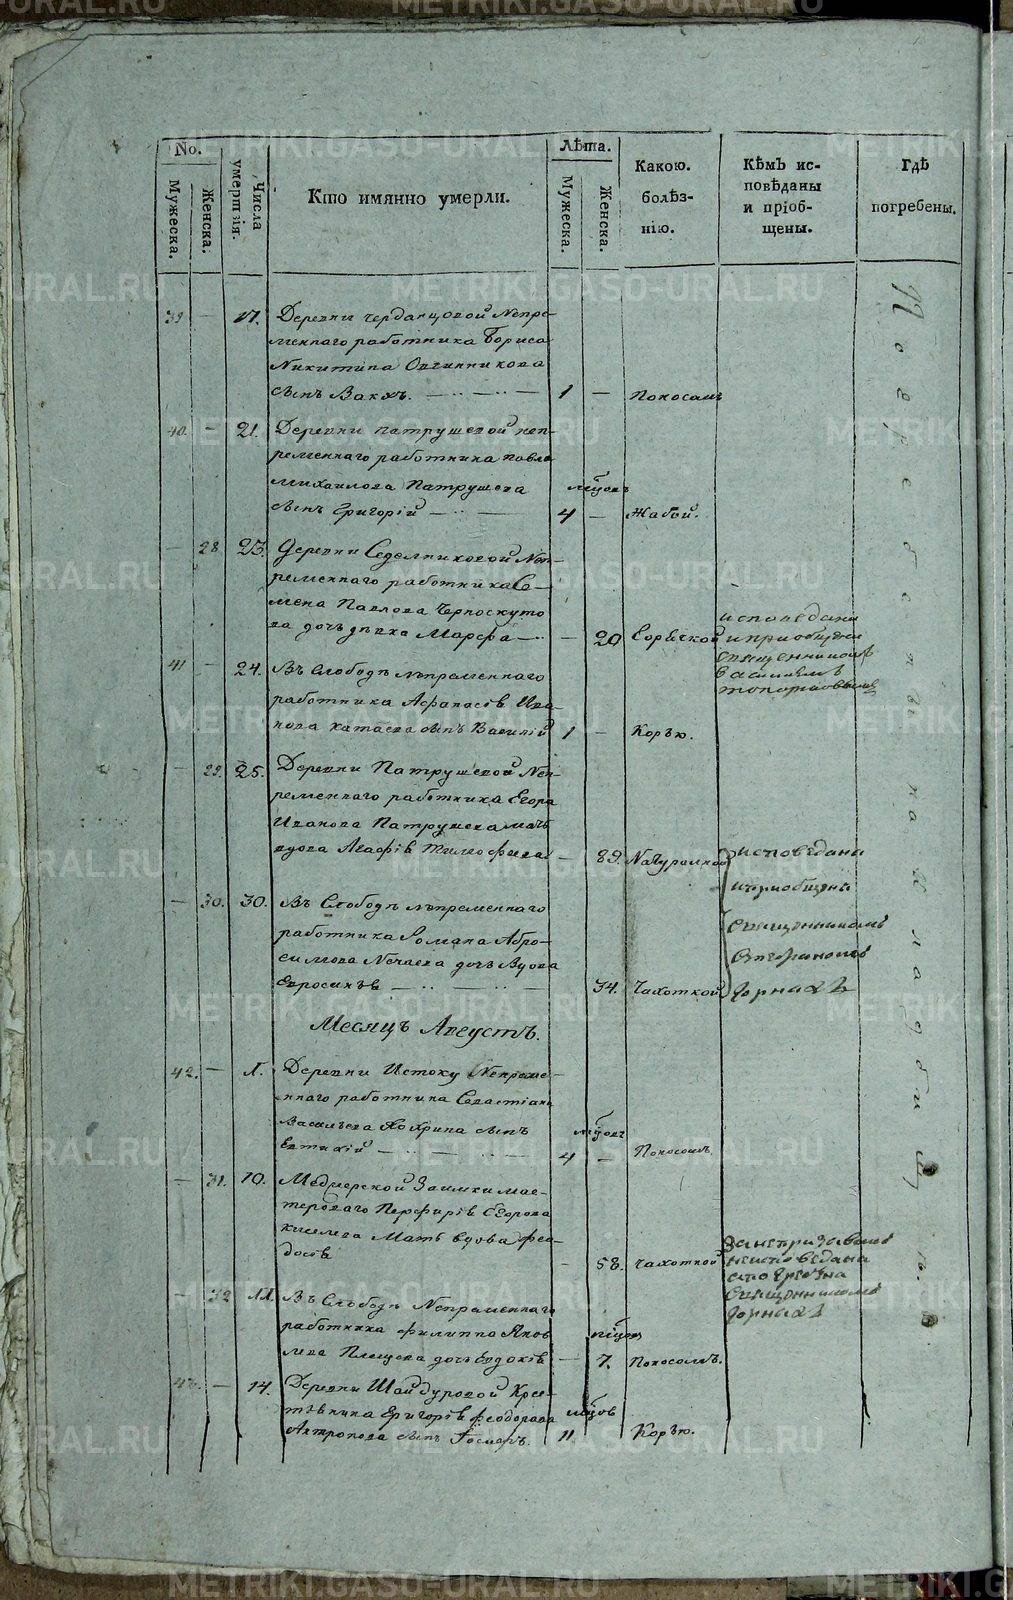 No.
Мужеска.
Женска.
Числа умертвія.
Кто имянно умерли.
Лѣта.
Мужеска.
Женска.
Какою.
болѣз-
нію.
Кѣмъ ис-
повѣданы
и пріоб-
щены.
Гдѣ
погребены.
39 — 17. Деревни Черданцовой Непре-
меннаго работника Бориса
Никитина Овчинникова
сынъ — 1 — Поносомъ
40. — 21. Деревни Патрушевой неп-
ременнаго работника Павла
Михайлова Патрушева мѣсяцовъ
сынъ Григорій — 4 — Жабой.
— 28 23. Деревни Седелниковой Неп-
ременнаго работника Се-
мена Павлова Черноскуто
ва дочь девка Марфа — — 20 Горячкой
исповедана
и приобщена
священникомъ
Василиемъ
Топорковымъ
41 — 24. Въ Слободе непременнаго
работника Афанасія Ива-
нова сынъ Василий 1 — Корью.
— 29. 25. Деревни Патрушевой Неп-
ременнаго работника Егора
Иванова Патрушева мать
вдова Агафія Тимофеева — 89. Натуральной
исповедана
и приобщена
священникомъ
— 30. 30. Въ Слободе непременнаго
работника Романа Абро-
симова Нечаева дочь Вдова
— 34. Чахоткой
Месяцъ Августъ.
42. — 1. Деревни Истоку Непреме-
ннаго работника Севастіана
Васильева Кокрина сынъ мѣсяцовъ
Евтихій — 4 — Поносомъ
— 31. 10. Заимки мас-
тероваго Перфирія Егорова
Киселева Мать вдова Фео-
досія — 58. Чахоткой
неисповедана
священникомъ
— 32 11. Въ Слободе Непременнаго
работника Филиппа Яков
лева Плещева дочь Евдокія — 7. Поносомъ.
43. — 14. Деревни Шайдуровой Крес-
тьянина Григорія Феодорова мѣсяцов
Антропова сынъ 11 Корью.
На
кладбищѣ
METRIKI.GASO-URAL.RU